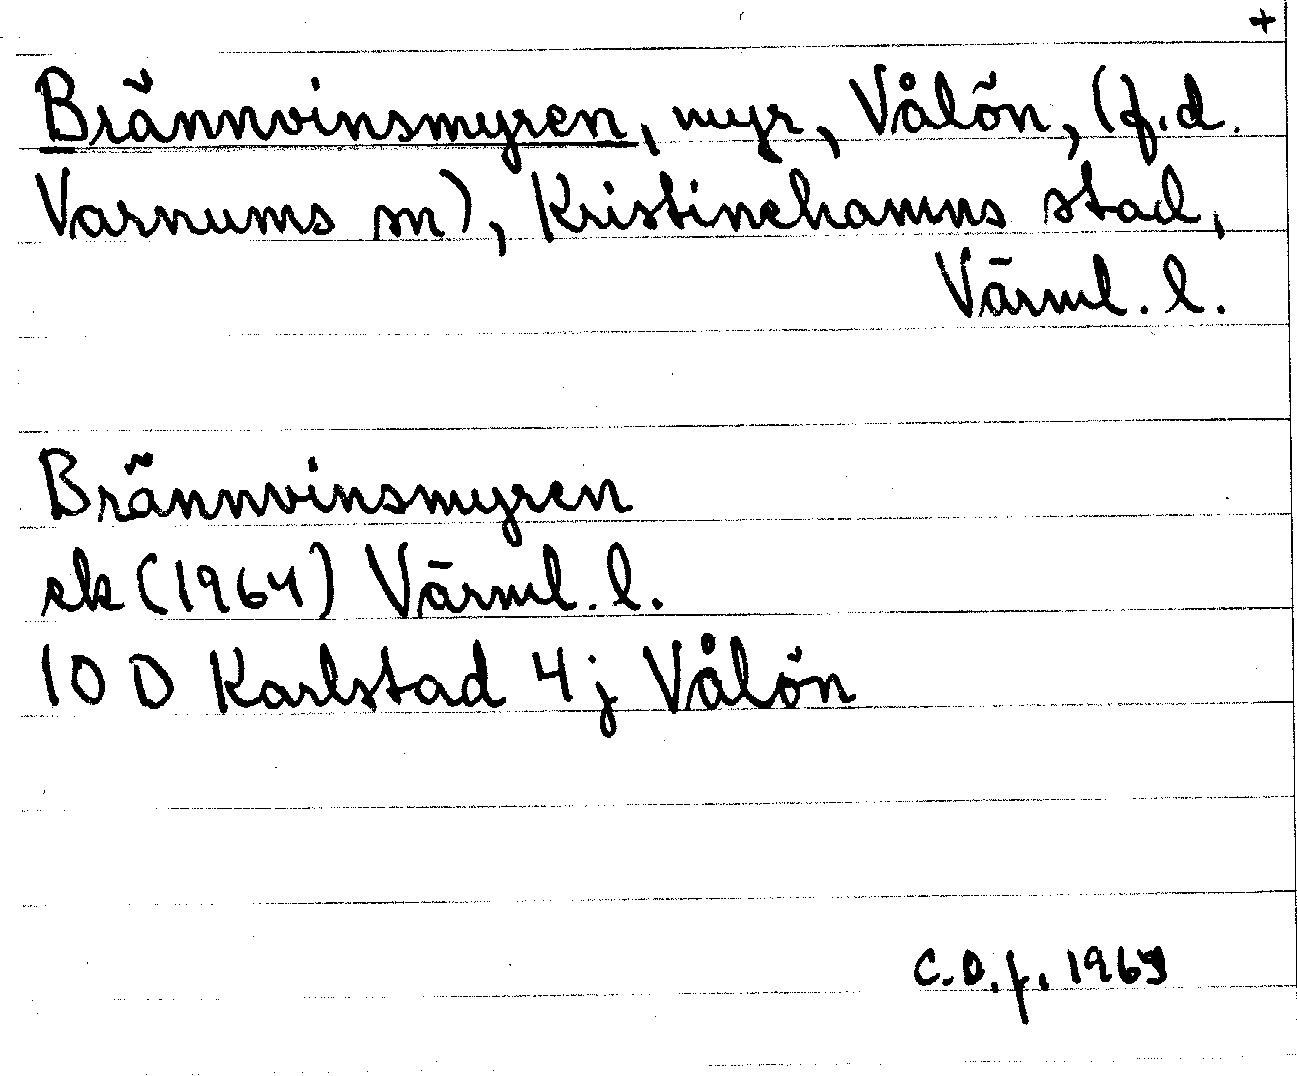 +
Brännvinsmyren, myr, Vålön, (f.d.
Varnums sn), Kristinehamns stad,
Värml. l.
Brännvinsmyren
ek (1964) Värml. l.
10 D Karlstad 4j Vålön
C.O.f.